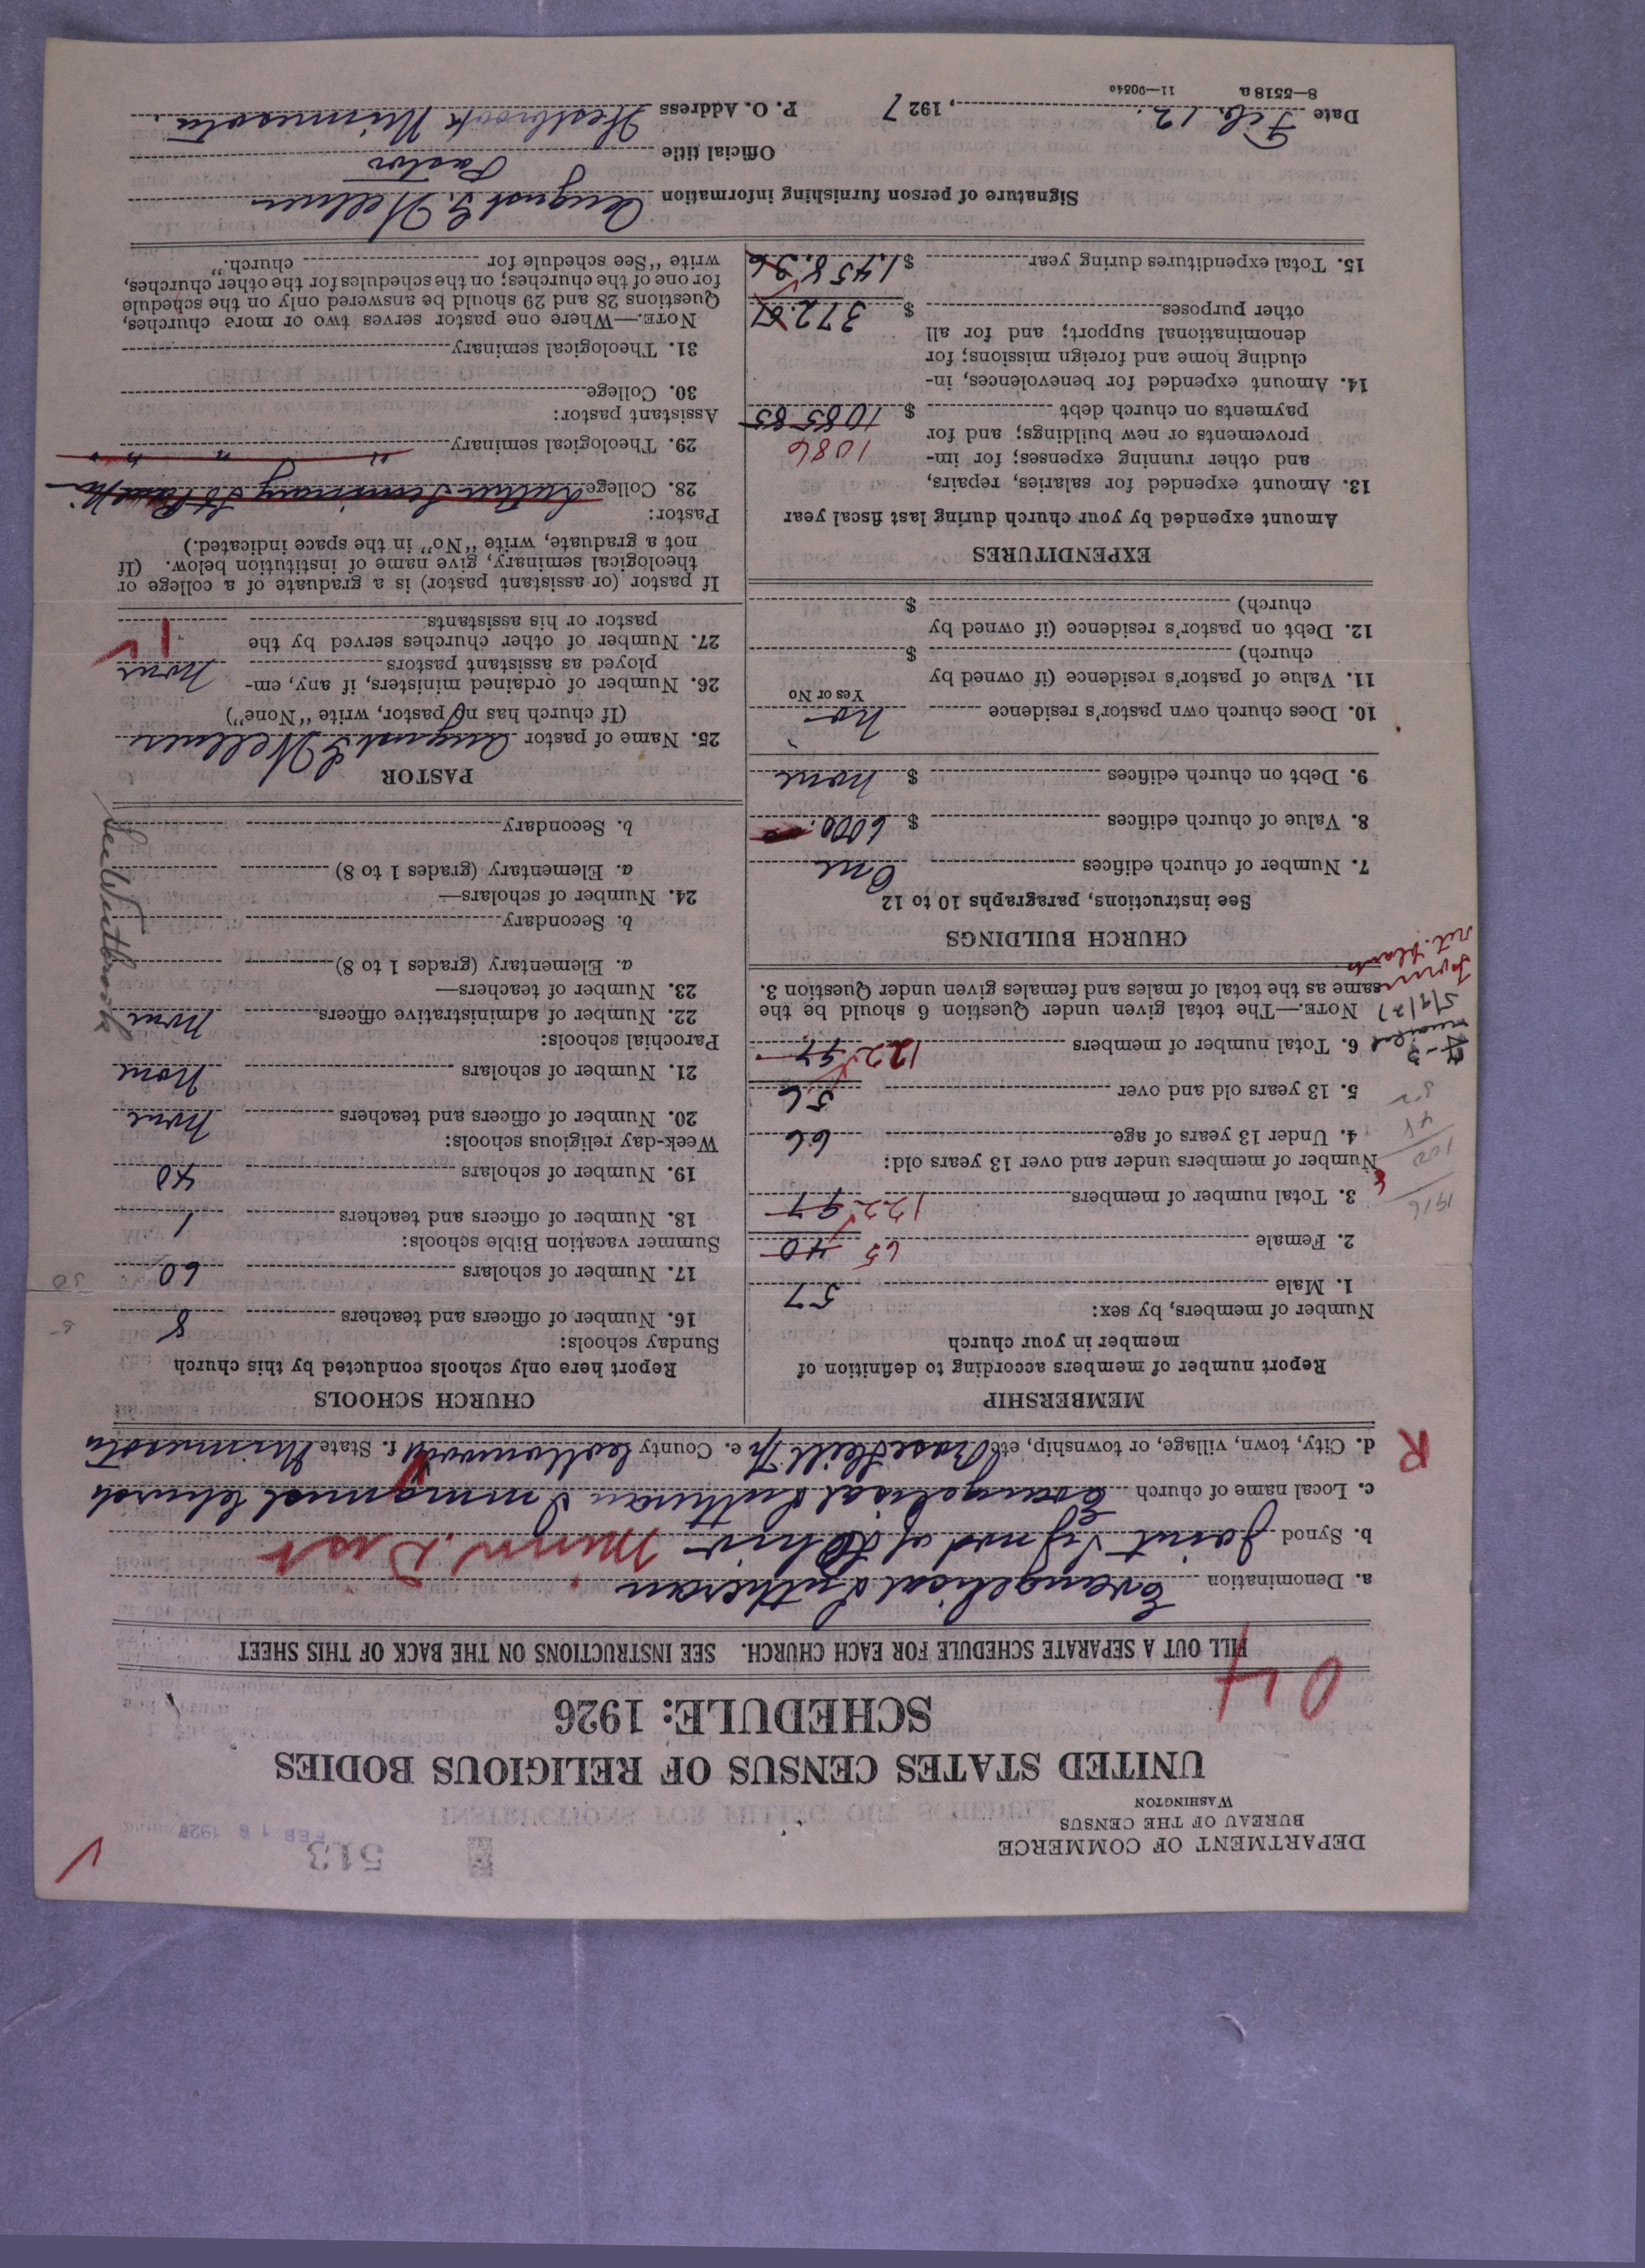 DEPARTMENT OF COMMERCE
BUREAU OF THE CENSUS
WASHINGTON
513
FEB 18 1927
UNITED STATES CENSUS OF RELIGIOUS BODIES
SCHEDULE: 1926
04
FILL OUT A SEPARATE SCHEDULE FOR EACH CHURCH. SEE INSTRUCTIONS ON THE BACK OF THIS SHEET
a. Denomination Evangelical Lutheran
b. Synod Joint Synod of Ohio Minn. Dist
c. Local name of church Evangelical Lutheran Immanuel Church
R
d. City, town, village, or township, etc. Rose Hill Tp e. County Cottonwood f. State Minnesota
MEMBERSHIP
Report number of members according to definition of
member in your church
Number of members, by sex:
1. Male 57
2. Female 65 40
3. Total number of members 122 97
Number of members under and over 13 years old:
4. Under 13 years of age 66
5. 13 years old and over 56
6. Total number of members 122 97
NOTE.—The total given under Question 6 should be the
same as the total of males and females given under Question 3.
1916
5/9/27
CHURCH BUILDINGS
See instructions, paragraphs 10 to 12
7. Number of church edifices One
8. Value of church edifices $ 6000.00
9. Debt on church edifices $ none
10. Does church own pastor's residence no
Yes or No
11. Value of pastor's residence (if owned by
church) $
12. Debt on pastor's residence (if owned by
church) $
EXPENDITURES
Amount expended by your church during last fiscal year
13. Amount expended for salaries, repairs,
and other running expenses; for im-
provements or new buildings; and for
payments on church debt $ 1085 85
1086
14. Amount expended for benevolences, in-
cluding home and foreign missions; for
denominational support; and for all
other purposes $ 372.51
15. Total expenditures during year $ 1,458.36
CHURCH SCHOOLS
Report here only schools conducted by this church
Sunday schools:
16. Number of officers and teachers 8
17. Number of scholars 60
50
Summer vacation Bible schools:
18. Number of officers and teachers 1
19. Number of scholars 40
Week-day religious schools:
20. Number of officers and teachers None
21. Number of scholars None
Parochial schools:
22. Number of administrative officers None
23. Number of teachers—
a. Elementary (grades 1 to 8)
b. Secondary
24. Number of scholars—
a. Elementary (grades 1 to 8)
b. Secondary
See Westbrook
PASTOR
25. Name of pastor August L Wellner
(If church has no pastor, write "None")
26. Number of ordained ministers, if any, em-
ployed as assistant pastors None
27. Number of other churches served by the
pastor or his assistants 1
If pastor (or assistant pastor) is a graduate of a college or
theological seminary, give name of institution below. (If
not a graduate, write "No" in the space indicated.)
Pastor:
28. College Luther Seminary St Paul
29. Theological seminary " " "
Assistant pastor:
30. College
31. Theological seminary
NOTE.—Where one pastor serves two or more churches,
Questions 28 and 29 should be answered only on the schedule
for one of the churches; on the schedules for the other churches,
write "See schedule for church."
Signature of person furnishing information August L. Wellner
Official title Pastor
Date Feb. 12, 1927 P. O. Address Westbrook Minnesota.
8—5518 a 11—9084a